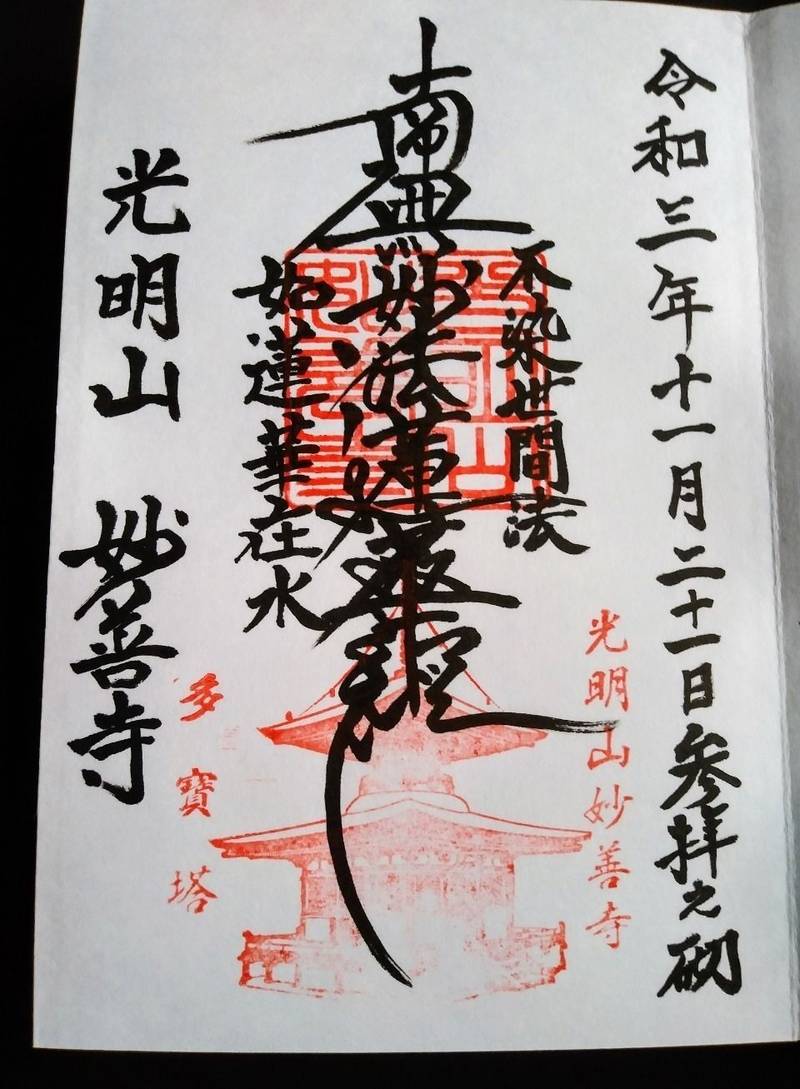 令和三年十一月二十一日参拝之砌
光明山妙善寺
不染世間法
南無妙法蓮華経
如蓮華在水
多寶塔
光明山 妙善寺